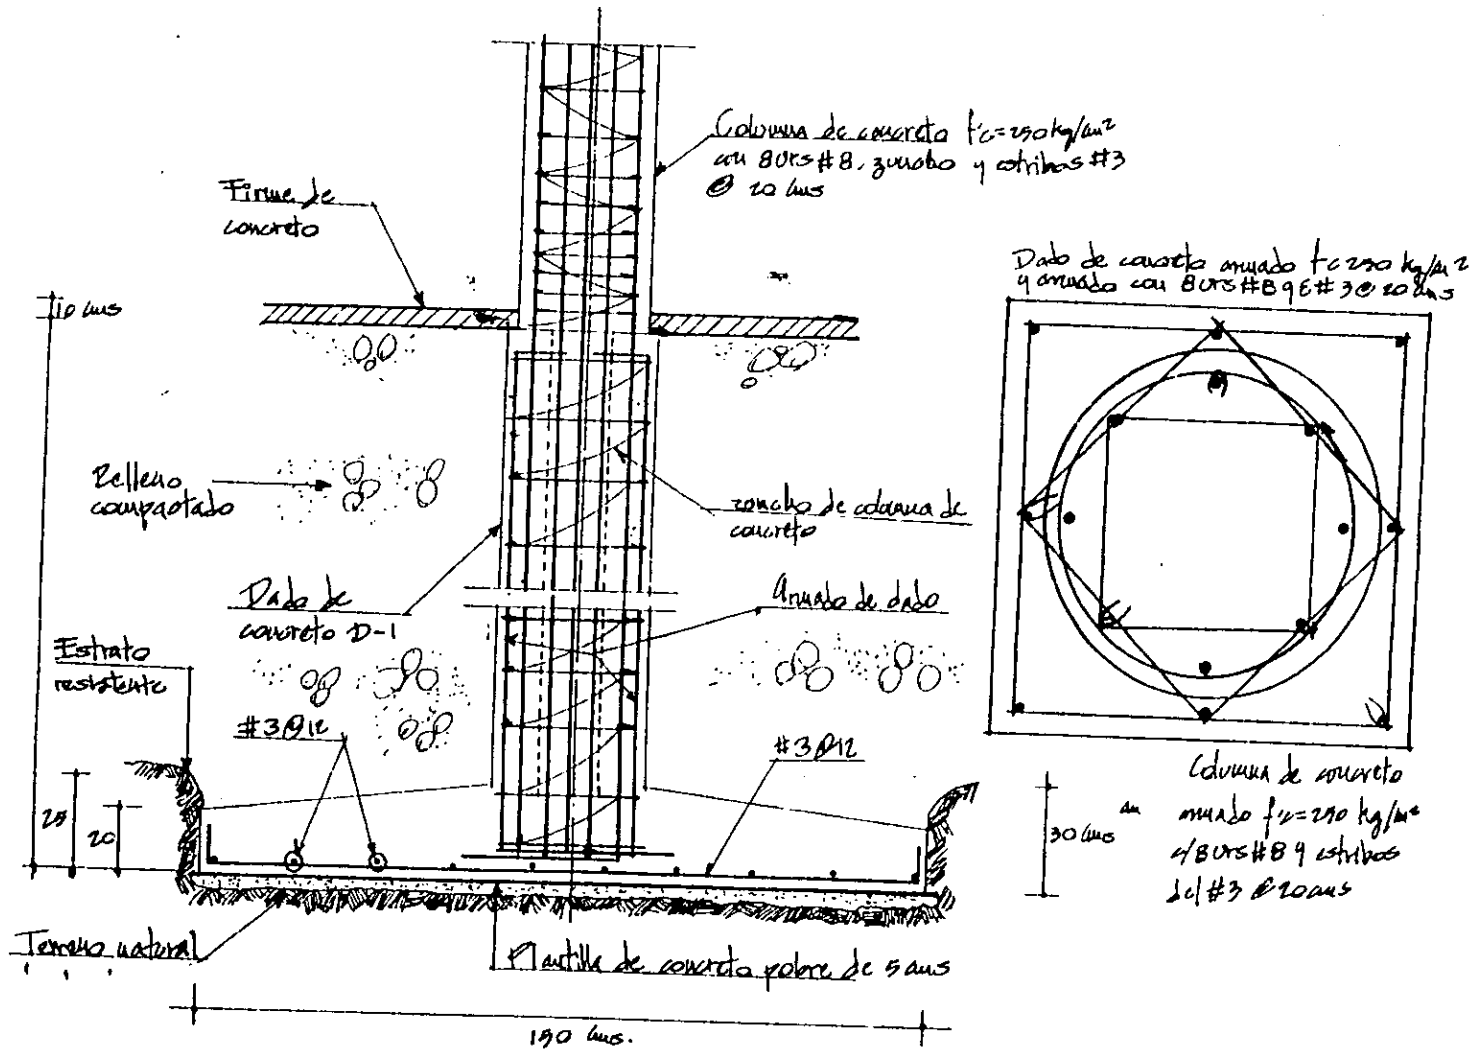 Columna de concreto f'c=250 kg/cm²
con 8 Vrs #8, zuncho y estribos #3
@ 20 cms
Firme de
concreto
10 cms
Dado de concreto armado f'c 250 kg/cm²
y armado con 8 Vrs #8 y E #3 @ 20 cms
Relleno
compactado
zoncho de columna de
concreto
Dado de
concreto D-1
Armado de dado
Estrato
resistente
#3@12
#3@12
25
20
30 cms
Columna de concreto
armado f'c=250 kg/cm²
c/8 Vrs #8 y estribos
del #3 @ 20 cms
Terreno natural
Plantilla de concreto pobre de 5 cms
150 cms.